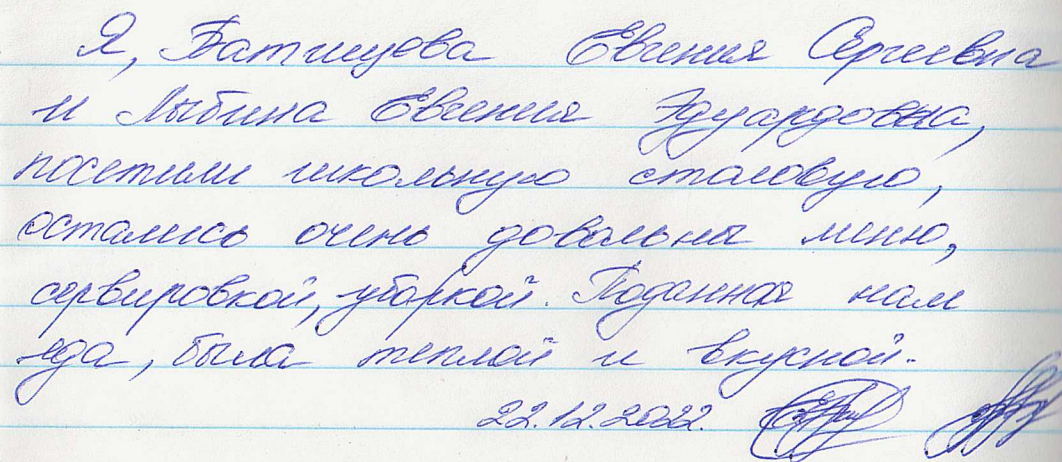 Я, Батищева Евгения Сергеевна
и Лыбина Евгения Эдуардовна,
посетили школьную столовую,
остались очень довольны меню,
сервировкой, уборкой. Поданная нам
еда, была теплой и вкусной.
22.12.2022.